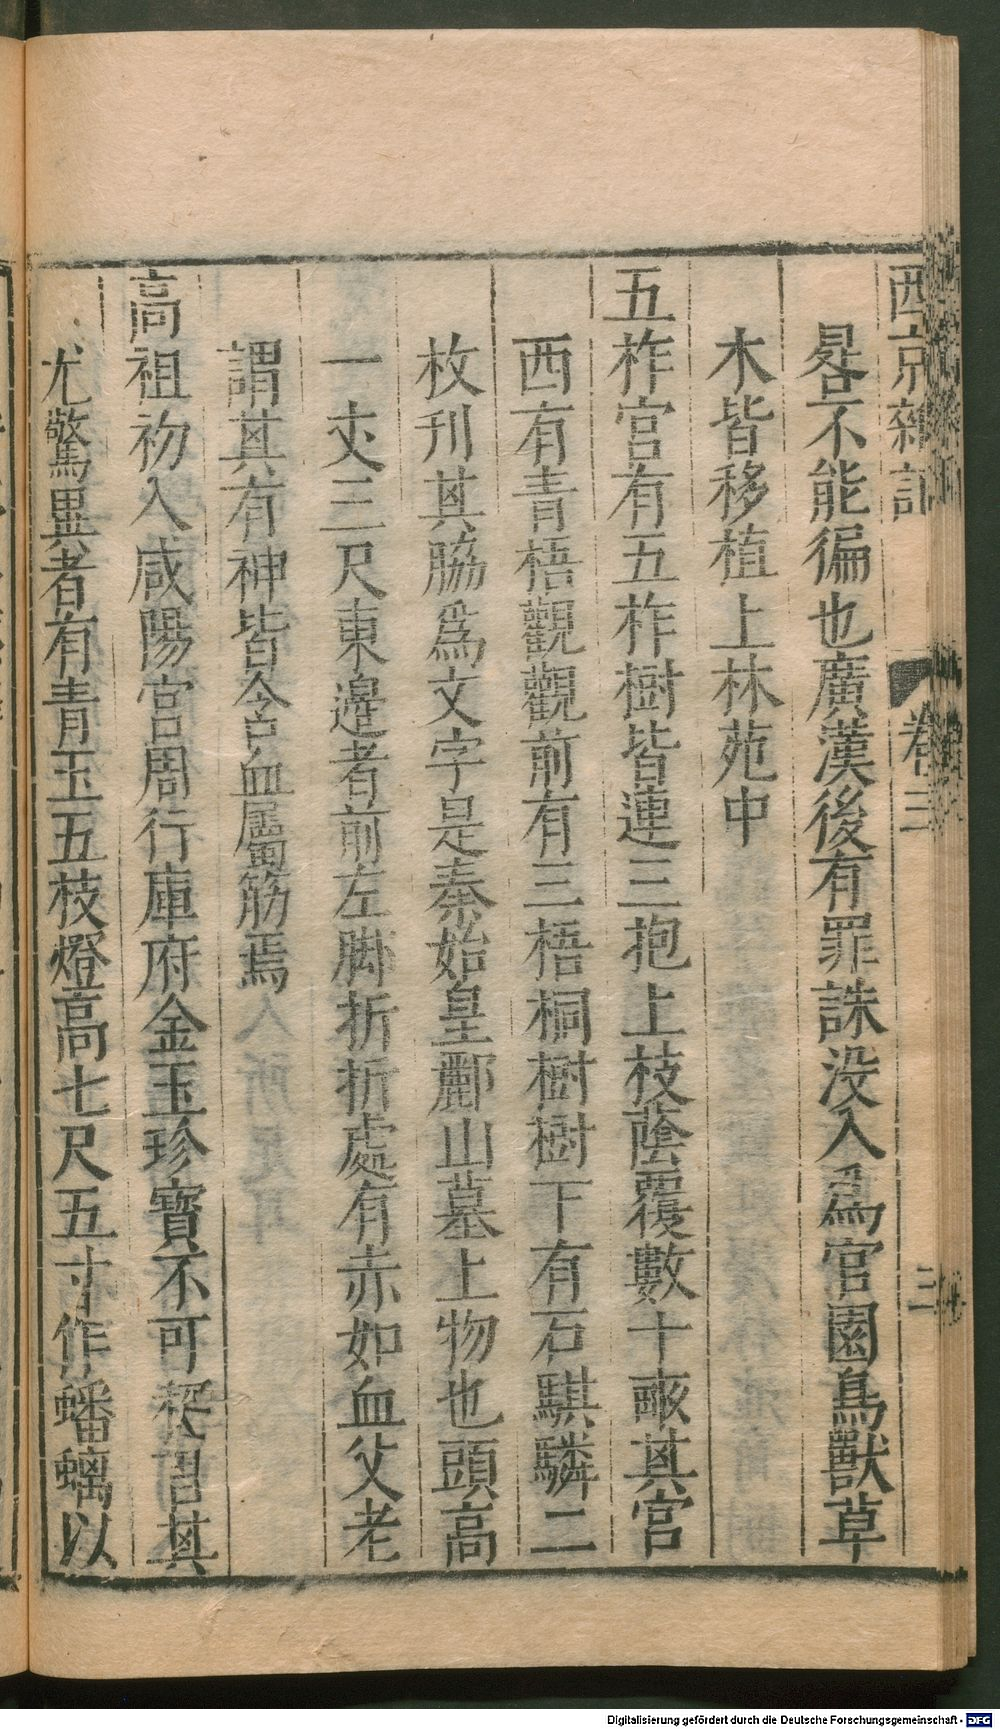 西京雜記 卷三 三
晷不能徧也廣漢後有罪誅没入爲官園鳥獸草
木皆移植上林苑中
五柞宮有五柞樹皆連三抱上枝蔭覆數十畝其宮
西有青梧觀觀前有三梧桐樹樹下有石騏驎二
枚刊其脇爲文字是秦始皇酈山墓上物也頭高
一丈三尺東邉者前左脚折折處有赤如血父老
謂其有神皆含血屬筋焉
高祖初入咸陽宮周行庫府金玉珍寶不可稱言其
尤驚異者有青玉五枝燈高七尺五寸作蟠螭以
Digitalisierung gefördert durch die Deutsche Forschungsgemeinschaft - DFG